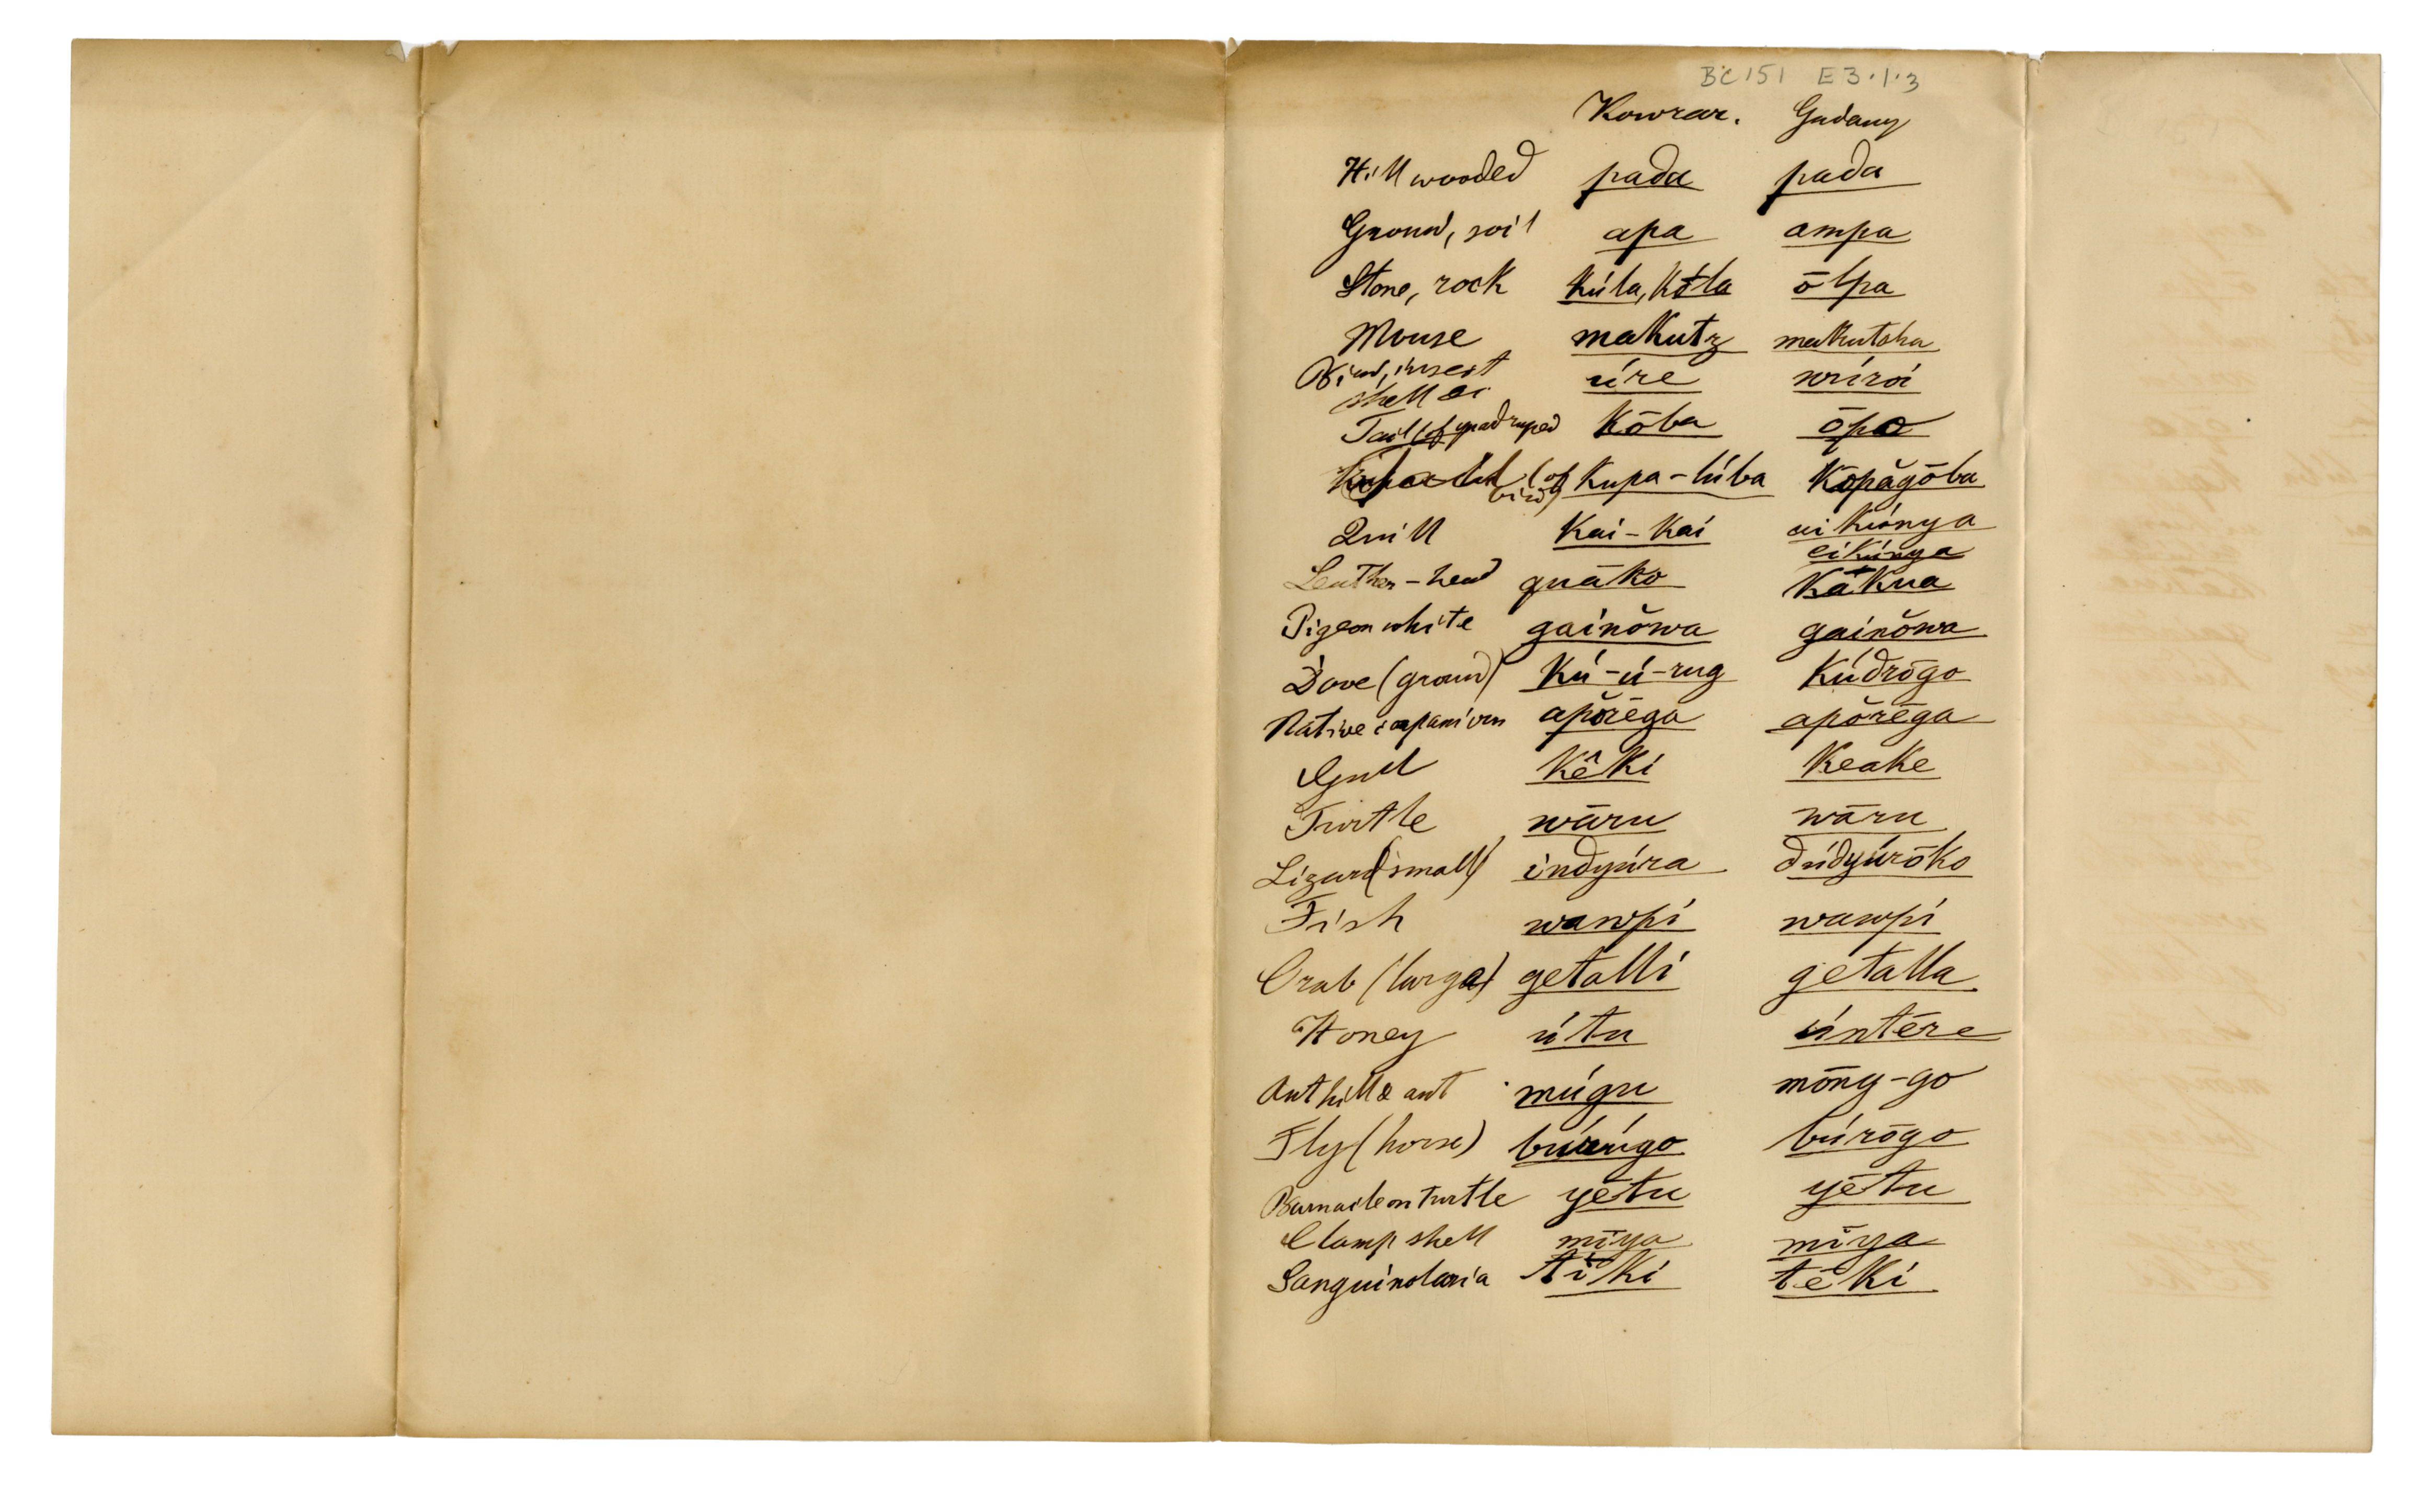 BC 151 E3.1.3
Kowrar. Gudang
Hill wooded pada pada
Ground, soil apa ampa
Stone, rock kúla, kŏla ōlpa
Mouse makutz makutcha
Bird, insect úre wíroi
shell &c
Tail (of quadruped kōba ōpo
(of bird) kupa-lúba kōpăgōba
Quill kai-kai ai kúonya
eikúnya
Leather-head guāko kākua
Pigeon white gainŏwa gainŏwa
Dove (ground) kú-ú-rug kúdrōgo
Native companion apŏrēga apŏrēga
Gull kêki keake
Turtle wāru wāru
Lizard (small) indyúra dúdyúrōko
Fish wawpi wawpi
Crab (large) getalli getalla
Honey útu úntēre
Ant hill & ant múgu mōng-go
Fly (horse) búrúgo búrōgo
Barnacle on turtle yētu yētu
Clamp shell mīya mīya
Sanguinolaria tīki tēki